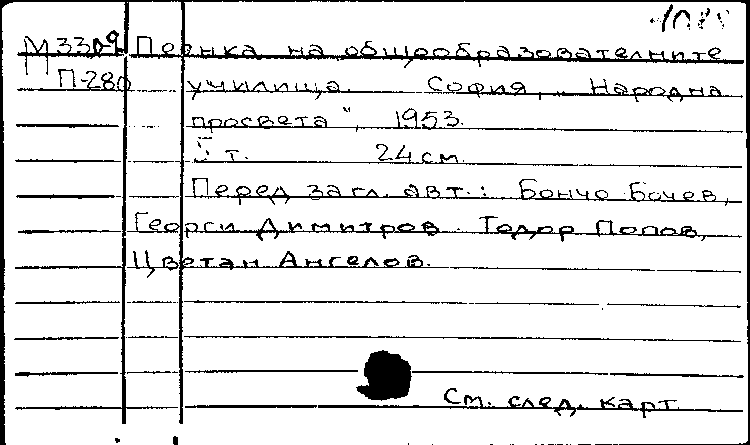 М330-9 Песнка на общообразователните
П-280 училища. София, „Народна
просвета“, 1953.
5 т. 24 см.
Перед загл. авт.: Бончо Бочев,
Георги Димитров. Тодор Попов,
Цветан Ангелов.
См. след. карт.